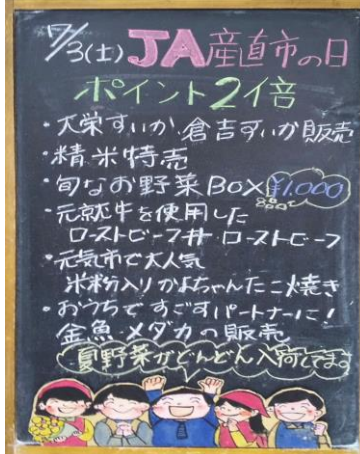 7/3(土) JA産直市の日
ポイント2倍
・大栄すいか、倉吉すいか販売
・精米特売
・旬なお野菜BOX ¥1,000
・元就牛を使用した
ローストビーフ丼・ローストビーフ
・元気市で大人気
米粉入りかよちゃんたこ焼き
・おうちですごすパートナーに!
金魚・メダカの販売
夏野菜がどんどん入荷してます